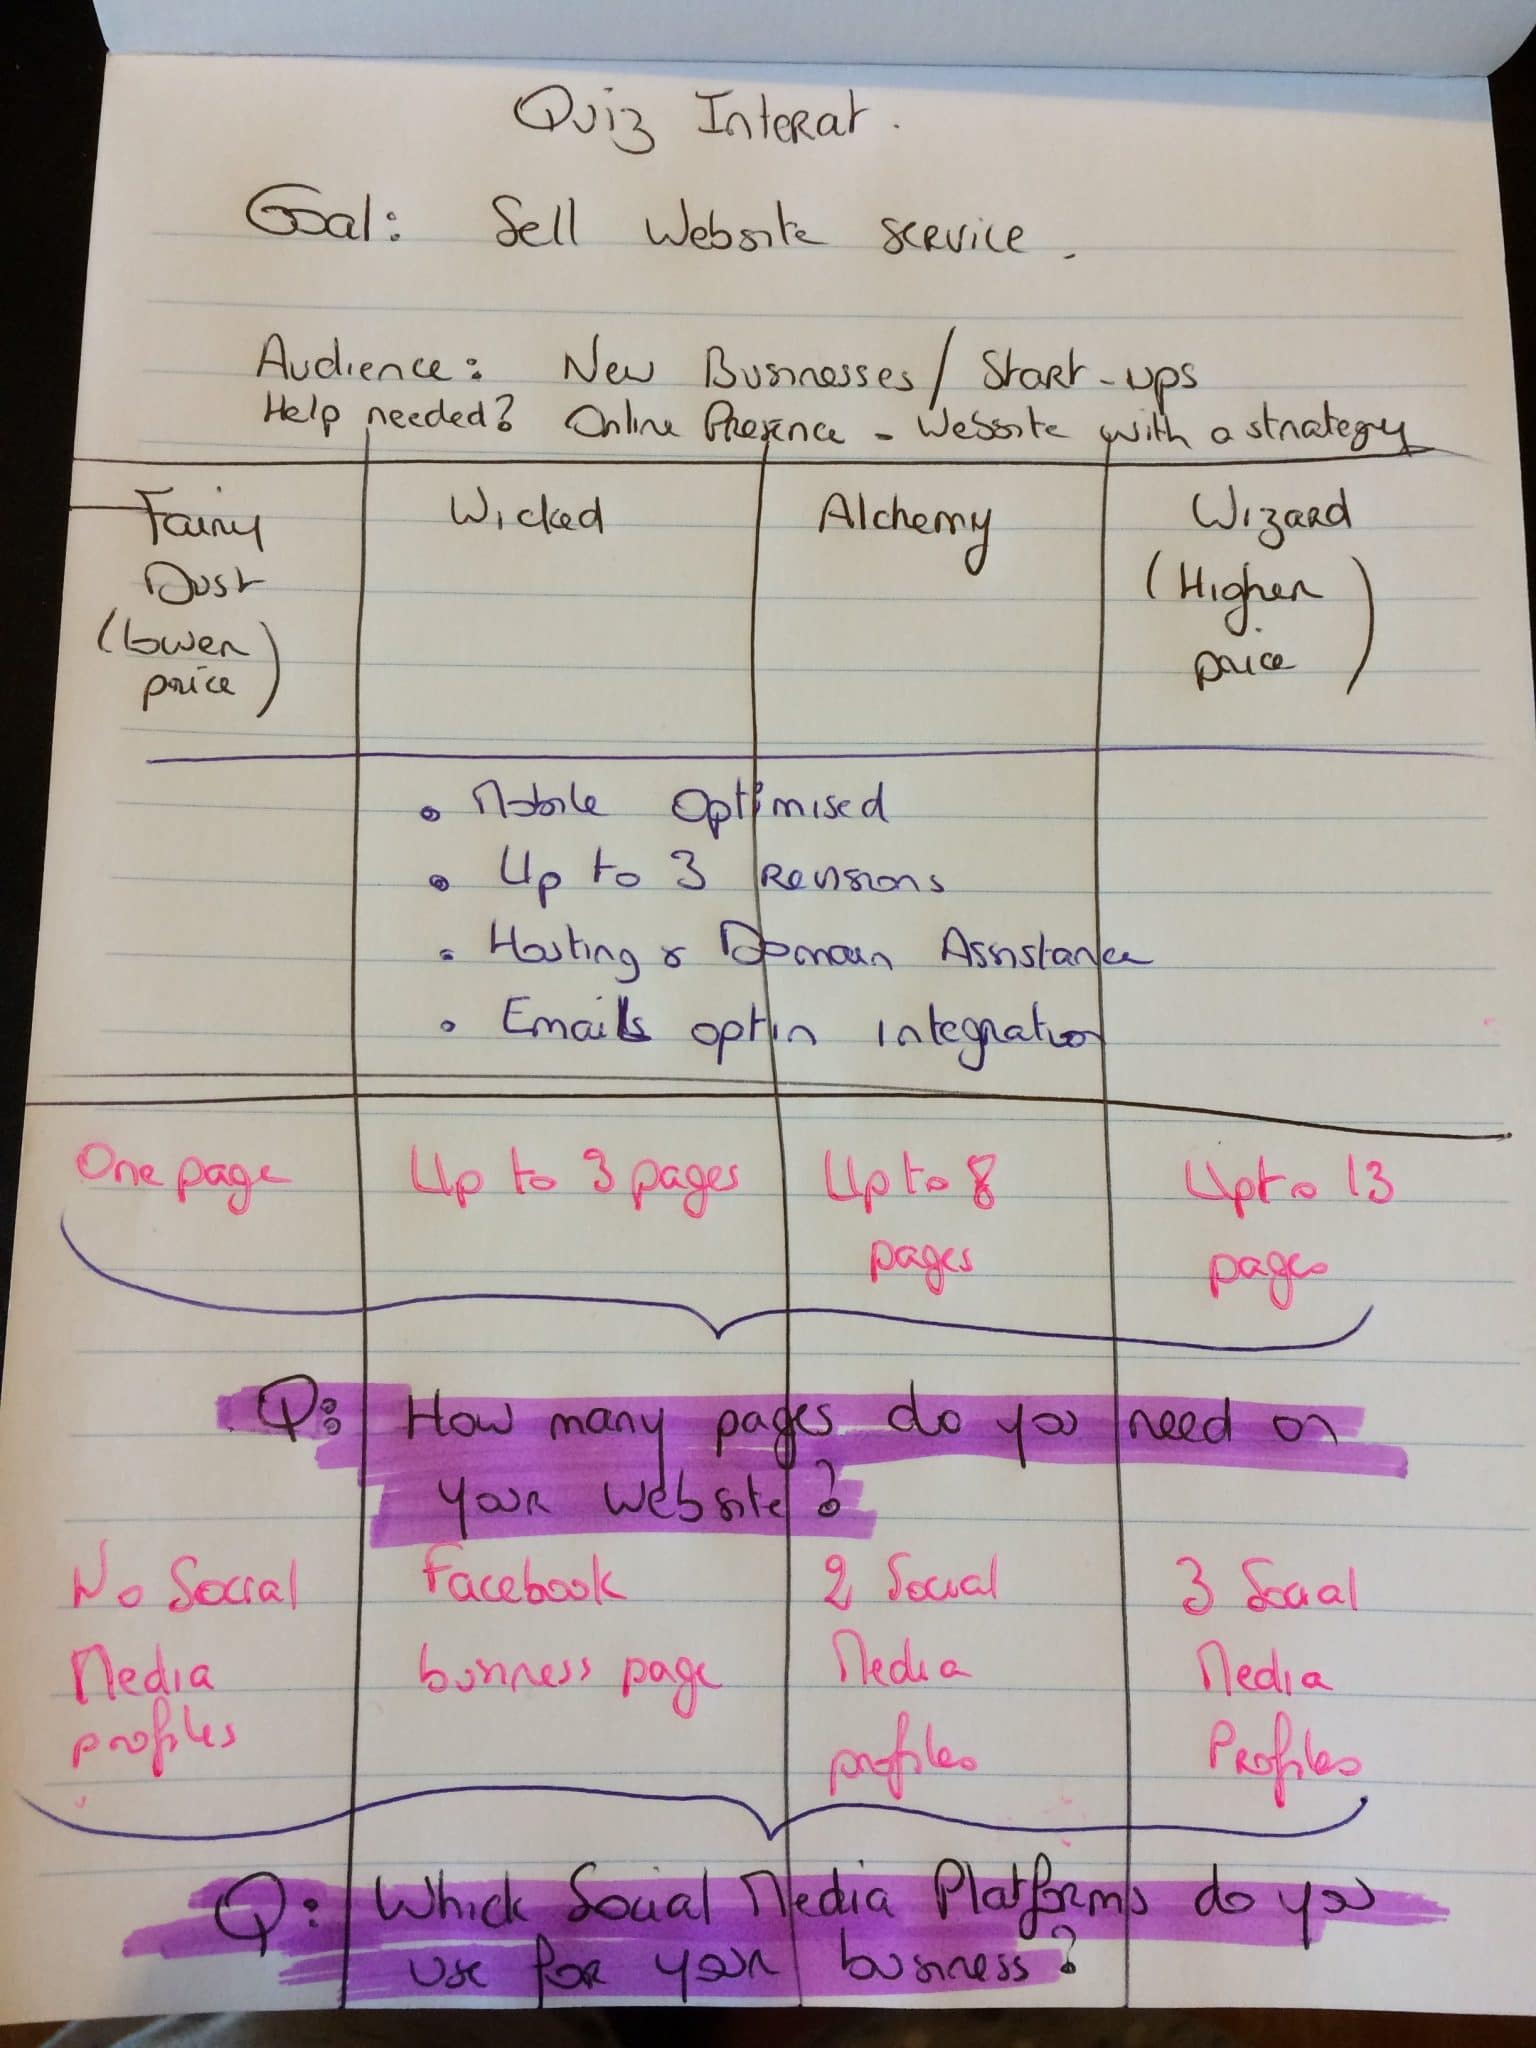 Quiz Interat.
Goal: Sell Website service.
Audience: New Businesses / Start-ups
Help needed? Online Presence - Website with a strategy
Fairy Wicked Alchemy Wizard
Dust (Higher
(lower price)
price)
• Mobile Optimised
• Up to 3 Revisions
• Hosting & Domain Assistance
• Emails optin integration
One page Up to 3 pages Up to 8 Up to 13
pages pages
Q: How many pages do you need on
your website?
No Social Facebook 2 Social 3 Social
Media business page Media Media
profiles profiles Profiles
Q: Which Social Media Platforms do you
use for your business?